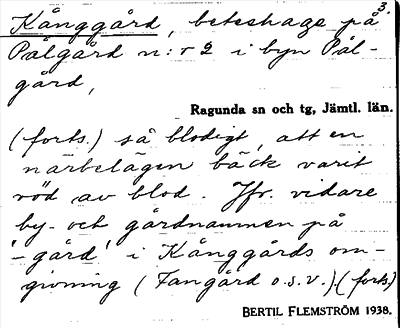 3.
Kånggård, beteshage på
Pålgård n:r 2 i byn Pål-
gård,
Ragunda sn och tg, Jämtl. län.
(forts.) så blodigt, att en
närbelägen bäck varit
röd av blod. Jfr. vidare
by- och gårdnamnen på
'-gård' i Kånggårds om-
givning (Fangård o.s.v.).(forts.)
BERTIL FLEMSTRÖM 1938.